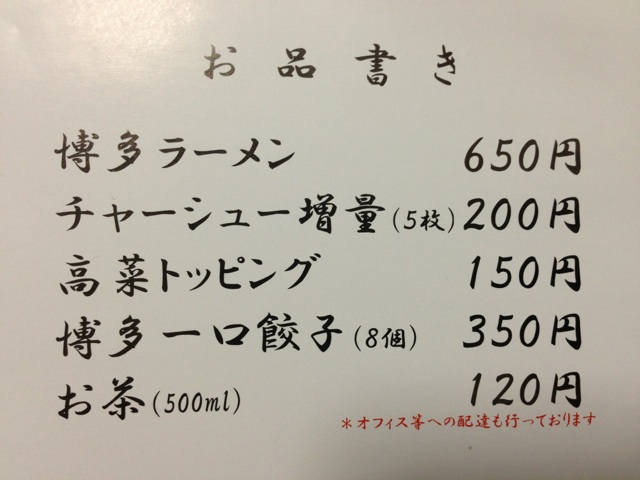 お品書き
博多ラーメン 650円
チャーシュー増量(5枚) 200円
高菜トッピング 150円
博多一口餃子(8個) 350円
お茶(500ml) 120円
*オフィス等への配達も行っております